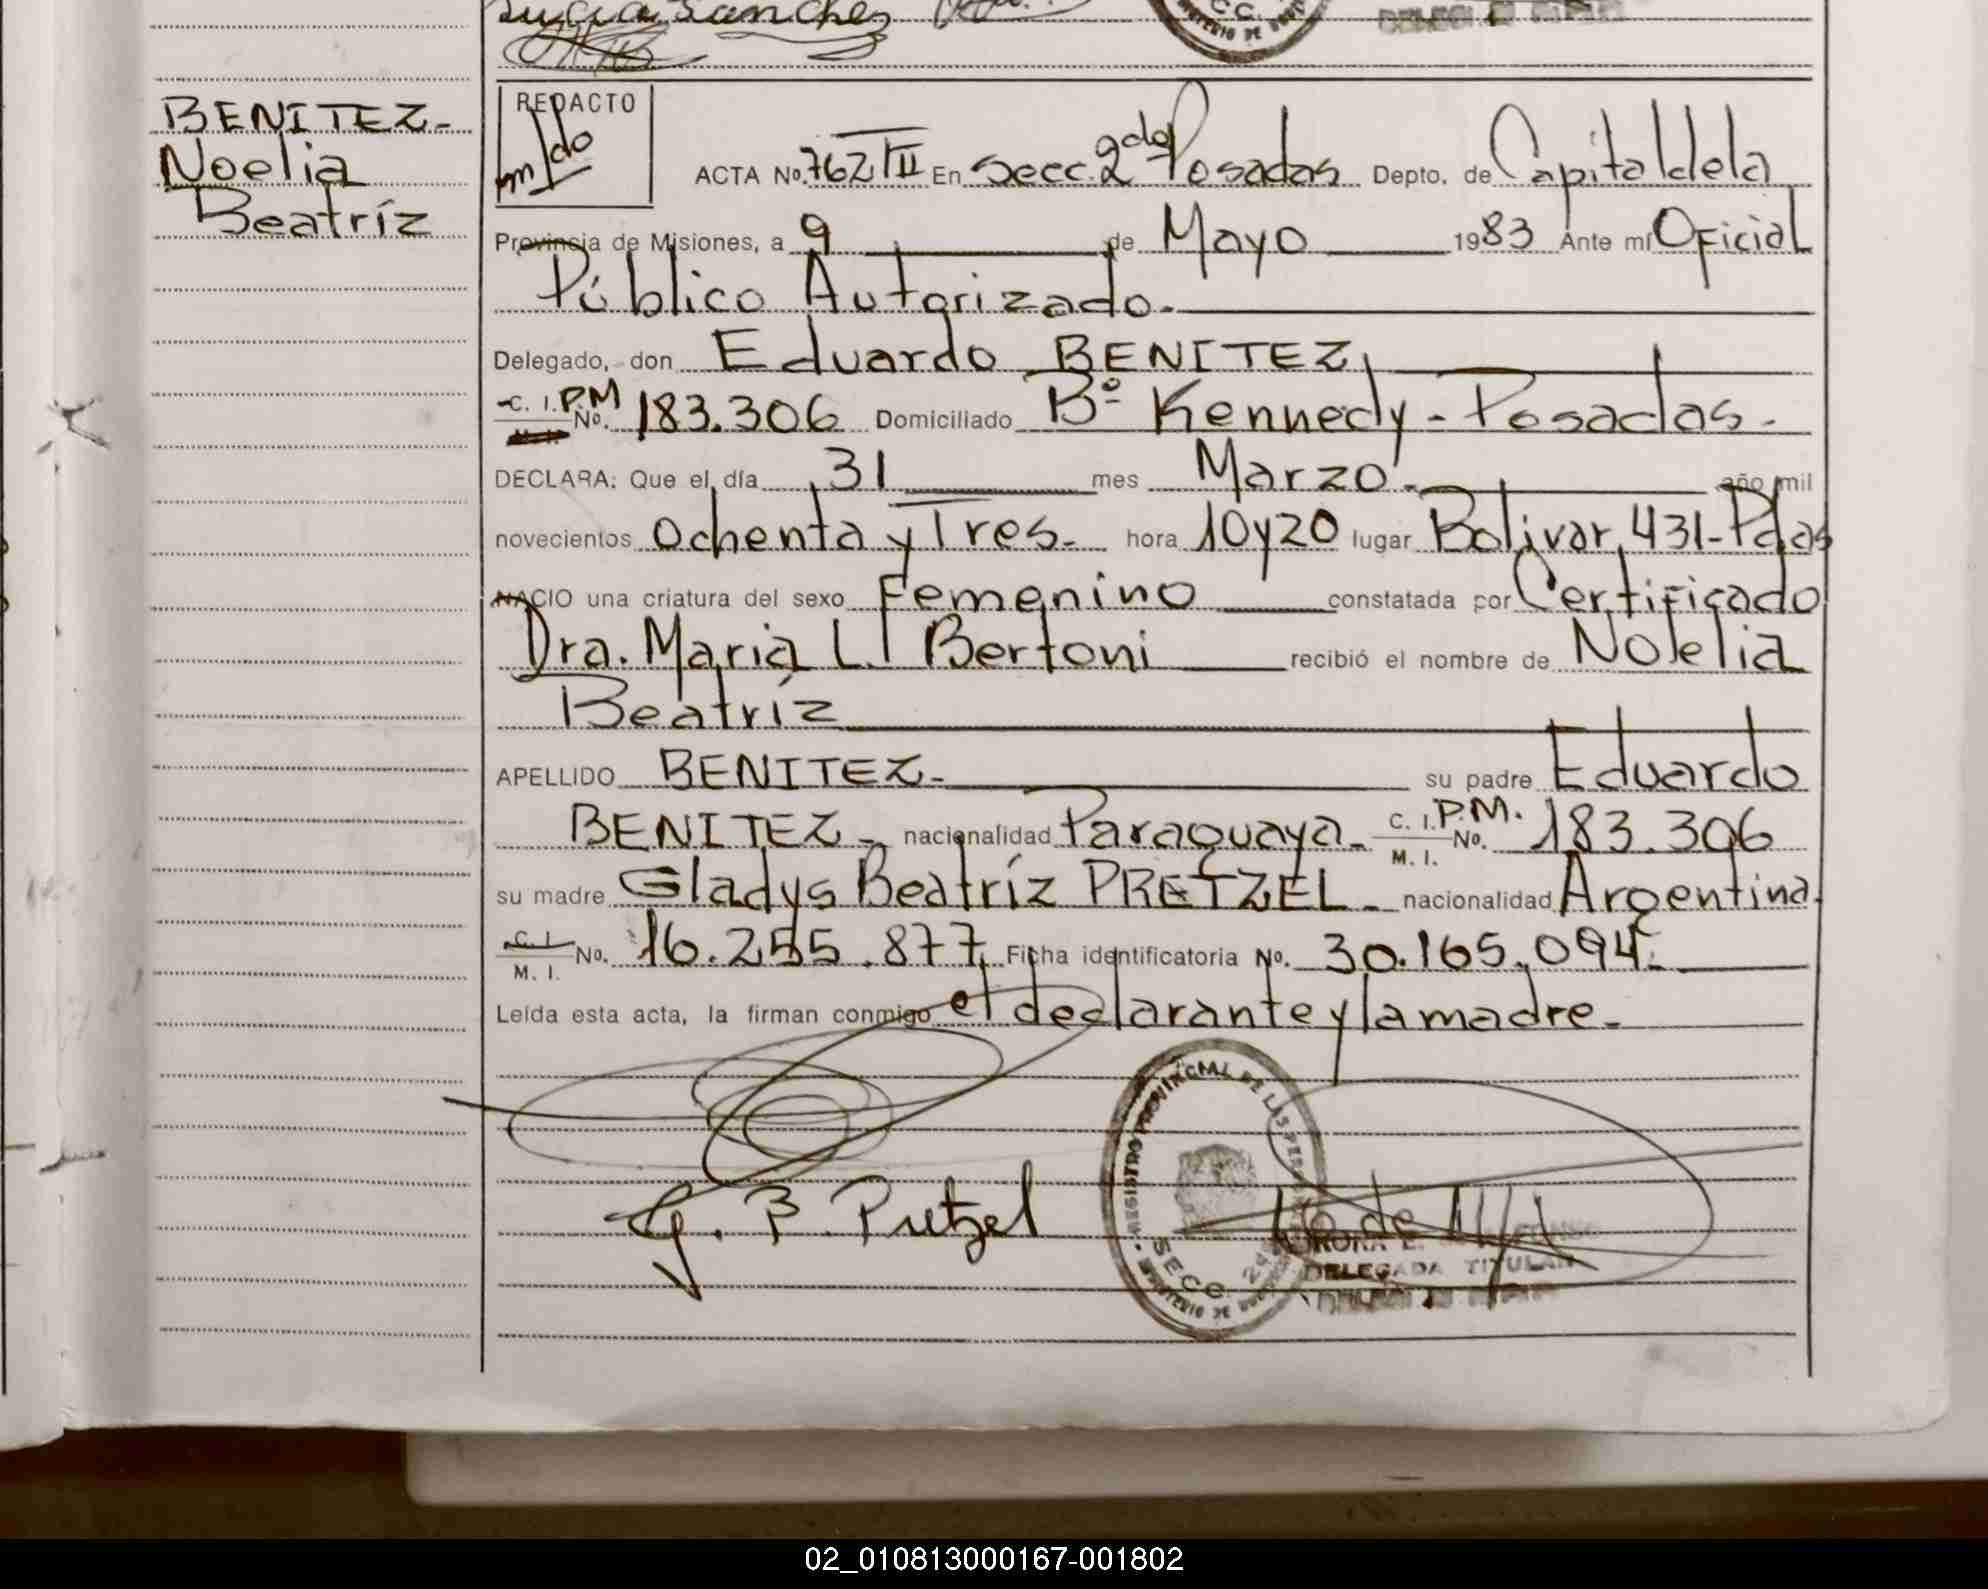 Lucia Sanchez
BENITEZ-
Noelia
Beatríz
REDACTO
ACTA No. 762 TII En secc. 2da Posadas Depto. de Capital de la
Provincia de Misiones, a 9 de Mayo 1983 Ante mí Oficial
Público Autorizado.
Delegado, don Eduardo BENITEZ,
C. I. P.M No. 183.306 Domiciliado Bº Kennedy - Posadas.
DECLARA: Que el día 31 mes Marzo año mil
novecientos Ochenta y Tres. hora 10y20 lugar Bolivar 431-Pdas
NACIO una criatura del sexo Femenino constatada por Certificado
Dra. Maria L. Bertoni recibió el nombre de Noelia
Beatríz
APELLIDO BENITEZ- su padre Eduardo
BENITEZ- nacionalidad Paraguaya. C. I. P.M. M. I. No. 183.306
su madre Gladys Beatríz PRETZEL- nacionalidad Argentina.
C. I. M. I. No. 16.255.877 Ficha identificatoria No. 30.165.094.
Leída esta acta, la firman conmigo el declarante y la madre.
REGISTRO PROVINCIAL DE LAS
G. B. Pretzel
SECC.
MINISTERIO DE
DELEGADA TITULAR
02_010813000167-001802